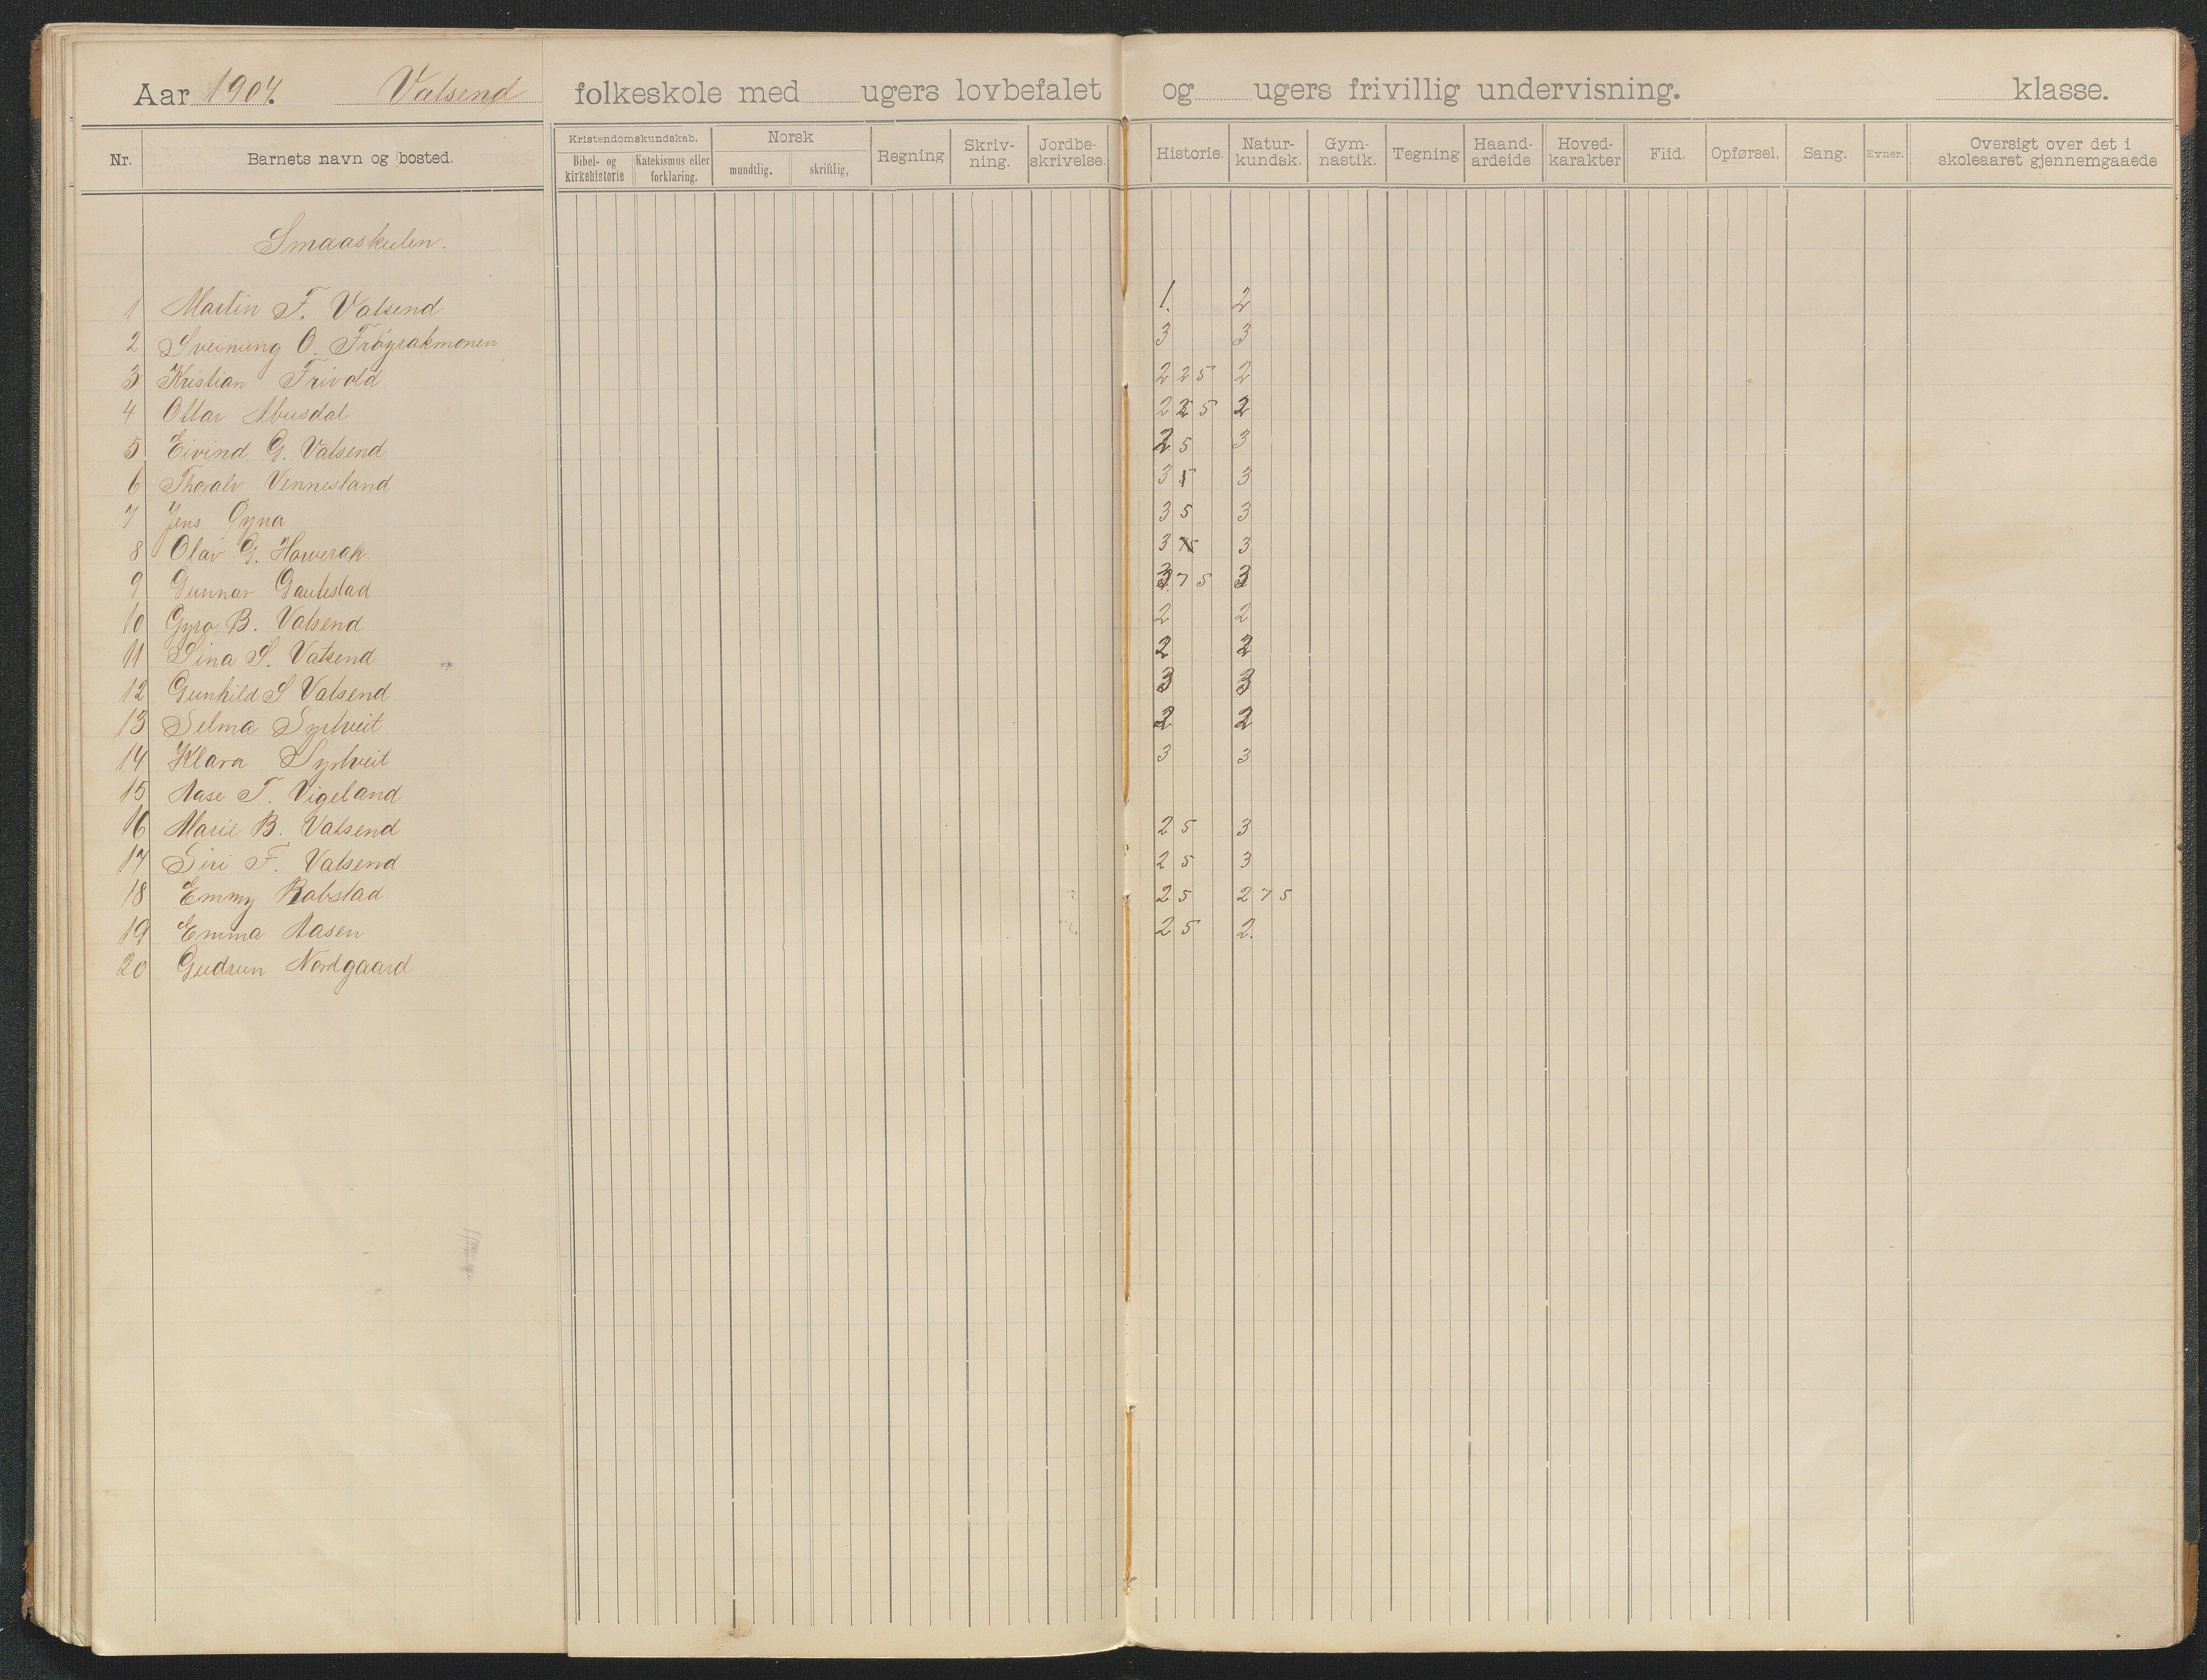 Aar 1904. Vatsend folkeskole med ugers lovbefalet og ugers frivillig undervisning. klasse.
Nr. Barnets navn og bosted. Kristendomskundskab. Bibel- og kirkehistorie Katekismus eller forklaring. Norsk mundtlig. skriftlig, Regning Skriv-ning. Jordbe-skrivelse. Historie. Natur-kundsk. Gym-nastik. Tegning Haand-arbeide Hoved-karakter Flid. Opførsel. Sang. Evner. Oversigt over det i skoleaaret gjennemgaaede
Smaaskulen.
1 Martin F. Vatsend 1. 2
2 Sveinung O. Frøysakmonen 3 3
3 Kristian Frivold 2 25 2
4 Ottar Abusdal 2 25 2
5 Eivind G. Vatsend 2 5 3
6 Thoralv Vennesland 3 3
7 Jens Gyna 3 5 3
8 Olav G. Howerak 3 3
9 Gunnar Gautestad 3 75 3
10 Gyro B. Vatsend 2 2
11 Sina S. Vatsend 2 2
12 Gunhild S Vatsend 3 3
13 Selma Syrtveit 2 2
14 Klara Syrtveit 3 3
15 Aase T. Vigeland
16 Marie B. Vatsend 2 5 3
17 Siri F. Vatsend 2 5 3
18 Emmy Robstad 2 5 2 75
19 Emma Aasen 2 5 2.
20 Gudrun Nordgaard